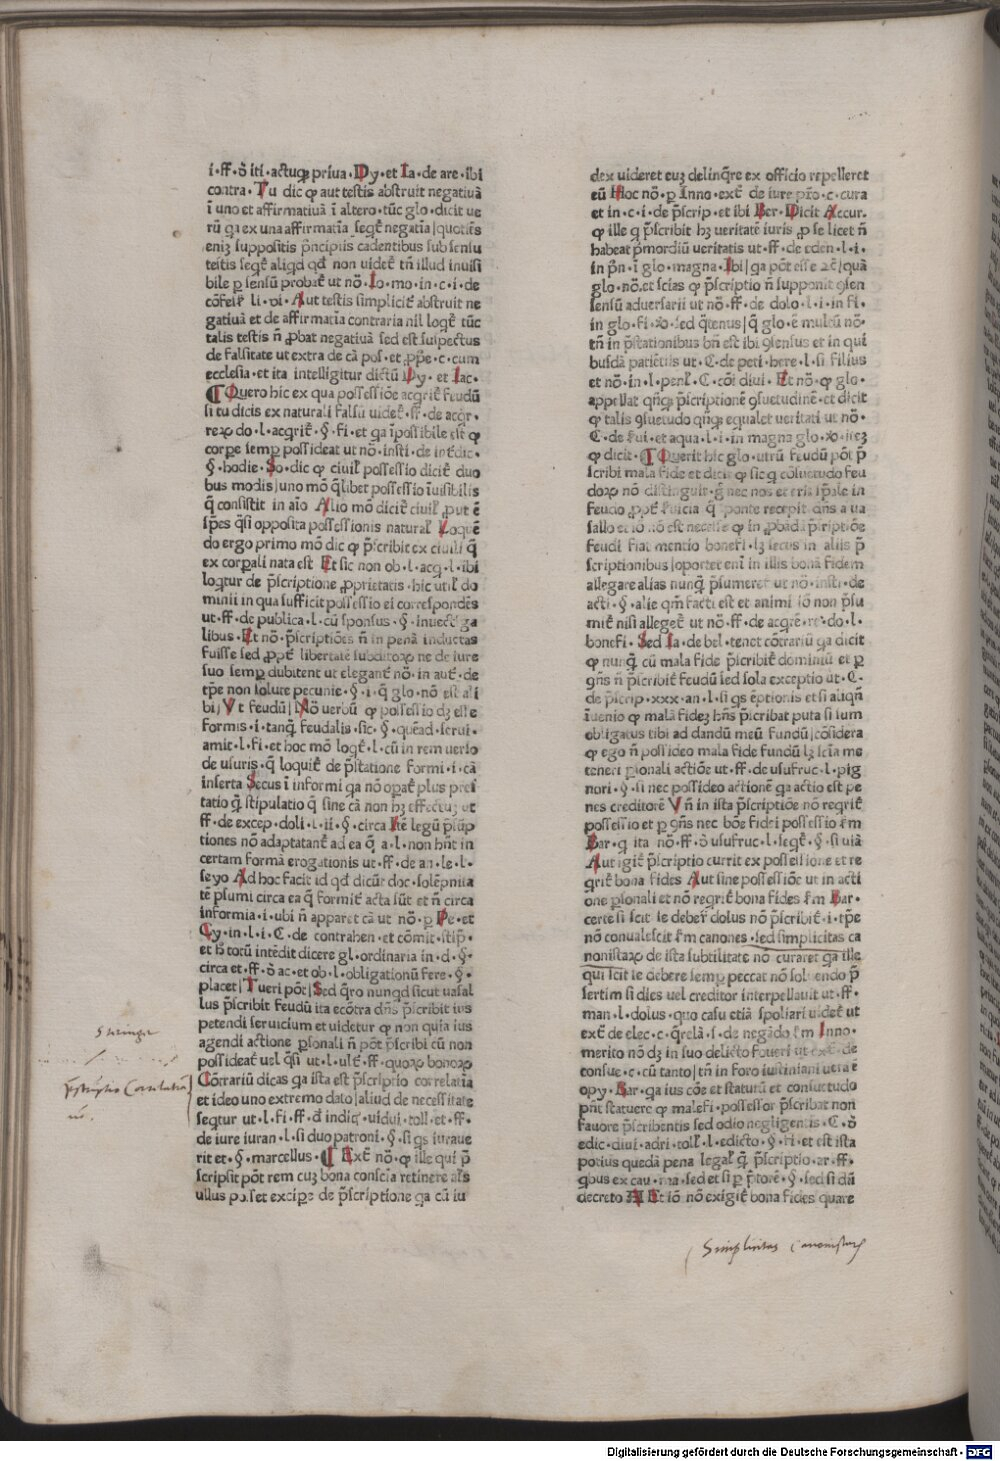 i·ff·ð iti·actuqꝫ priua·Dy·et Ia·de are·ibi
contra·Tu dic ꝙ aut testis abstruit negatiuã
ĩ uno et affirmatiuã ĩ altero·tũc glo·dicit ue
rũ ꝗa ex una affirmatĩa seqť negatĩa|quotiẽs
enĩꝫ suppositis p̃ncipiis cadentibus sub sensu
testis seqť aliqd qď non uideť tñ illud inuisi
bile ꝑ sensũ probať ut nõ·Io·mo·in·c·i·de
cõfeſſ li·vi·Aut testis simplicií abstruit ne
gatiuã et de affirmatĩa contraria nil loqť tũc
talis testis ñ ꝓbat negatiuã sed est suspectus
de falsitate ut extra de cã pos·et ꝓpe·c·cum
ecclesia·et ita intelligitur dictũ Dy·et Iac·
¶ Quero hic ex qua possessiõe acqriť feudũ
si tu dicis ex naturali falsũ uideť·ff·de acqr·
reꝝ do·l·acqriť·§·fi·et ꝗa ĩpossibile est ꝙ
corpe semꝑ possideat ut nõ·insti·de inťdic·
§·hodie·So·dic ꝙ ciuil possessio diciť duo
bus modis|uno mõ q̃libet possessio ĩuisibilis
q̃ consistit in aĩo Alio mõ diciť ciuil ꝓut ẽ
sp̃es q̃si opposita possessionis natural Loquẽ
do ergo primo mõ dic ꝙ p̃scribit ex ciuili q̃
ex corꝑali nata est Et sic non ob·l·acq·l·ibi
loqtur de p̃scriptione ꝓprietatis·hic util do
minii in qua sufficit possessio ei correspondẽs
ut·ff·de publica·l·cũ sponsus·§·inuectꝫ ga
libus·Et nõ·p̃scriptiões ñ in penã inductas
fuisse sed ꝓpť libertatẽ subditoꝝ ne de iure
suo semꝑ dubitent ut eleganť nõ·in auť·de
tp̃e non solute pecunie·§·i·q̃ glo·nõ est ali
bi|Vt feudũ|Nõ uerbũ ꝙ possessio dꝫ esse
formis·i·tanq̃ feudalis·sic·§·quẽad·serui·
amit·l·fi·et hoc mõ loqť·l·cũ in rem uerso
de usuris·q̃ loquiť de p̃statione formi·i·cã
inserta Secus ĩ informi ꝗa nõ opať plus pres
tatio q̃ stipulatio q̃ sine cã non hꝫ effectuꝫ ut
ff·de excep·doli·l·ii·§·circa Itẽ legũ p̃sũp
tiones nõ adaptatanť ad ea q̃ a·l·non hñt in
certam formã erogationis ut·ff·de an·le·l·
seyo Ad hoc facit id qď dicũt doc·solẽpnita
tẽ p̃sumi circa ea q̃ formiť acta sũt et ñ circa
informia·i·ubi ñ apparet cã ut nõ·ꝑ Pe·et
Cy·in·l·i·C·de contrahen·et cõmit·stip̃·
et ħ totũ intẽdit dicere gl·ordinaria in·d·§·
circa et·ff·ð ac·et ob·l·obligationũ fere·§·
placet|Tueri põt|Sed q̃ro nunqd sicut uasal
lus p̃scribit feudũ ita ecõtra dñs p̃scribit ius
petendi seruicium et uidetur ꝙ non quia ius
agendi actione ꝑsonali ñ põt p̃scribi cũ non
possideať uel q̃si ut·l·ulť·ff·quoꝝ bonoꝝ
Cõtrariũ dicas ꝗa ista est p̃scriptio correlatĩa
et ideo uno extremo dato|aliud de necessitate
seqtur ut·l·fi·ff·ð indic·uidui·toll·et·ff·
de iure iuran·l·si duo patroni·§·si ꝗs iuraue
rit et·§·marcellus·¶ Extͣ nõ·ꝙ ille qui p̃
scripsit põt rem cuꝫ bona conscĩa retinere als
ullus posset excipe de p̃scriptione ꝗa cũ iu
Iuringe
p̃scriptio Correlatiua
dex uideret euꝫ delinq̃re ex officio repelleret
eũ Hoc nõ·ꝑ Inno·extͣ de iure pr̃o·c·cura
et in·c·i·de p̃scrip·et ibi Ber·Dicit Accur·
ꝙ ille q̃ p̃scribit hꝫ ueritatẽ iuris ꝓ se licet ñ
habeat p̃mordiũ ueritatis ut·ff·de eden·l·i·
in pñ·ĩ glo·magna·Ibi|ꝗa põt esse ⁊c̃|quã
glo·nõ·et scias ꝙ p̃scriptio ñ supponit ꝯsen
sensũ aduersarii ut nõ·ff·de dolo·l·i·in fi·
in glo·fi·ꝟo·sed q̃tenus|q̃ glo·ẽ multũ nõ·
tñ in p̃stationibus bñ est ibi ꝯsensus et in qui
busdã patiẽtiis ut·C·de peti·here·l·si filius
et nõ·in·l·penl·C·cõi diui·Et nõ·ꝙ glo·
appellat qñqꝫ p̃scriptionẽ ꝯsuetudinẽ·et dicit
ꝙ talis ꝯsuetudo qñqꝫ equaleť ueritati ut nõ·
C·de ſui·et aqua·l·i·in magna glo·ꝟo·iteꝫ
ꝙ dicit·¶ Querit hic glo·utrũ feudũ põt p̃
scribi mala fide et dicit ꝙ sic q̃ cõsuetudo feu
doꝝ nõ distinguit·g̃ nec nos et eriĩ sp̃ale in
feudo ꝓpť ſuicia q̃ sponte recepit dñs a ua
sallo et iõ nõ est necesse ꝙ in ꝓbãda p̃scriptiõe
feudi fiat mentio bonefi·lꝫ secus in aliis p̃
scriptionibus|oporteť enĩ in illis bonã fidem
allegare alias nunq̃ p̃sumereť ut nõ·insti·de
acti·§·alie qm̃ facti est et animi iõ non p̃su
miť nisi allegeť ut nõ·ff·de acqre·re·do·l·
bonefi·Sed Ia·de bel·tenet cõtrariũ ꝗa dicit
ꝙ nunq̃ cũ mala fide p̃scribiť dominiũ et ꝑ
ꝯñs ñ p̃scribiť feudũ sed sola exceptio ut·C·
de p̃scrip·xxx·an·l·si ꝗs ẽptionis et si aliqñ
ĩuenio ꝙ malã fideꝫ hñs p̃scribat puta si sum
obligatus tibi ad dandũ meũ fundũ|cõsidera
ꝙ ego ñ possideo mala fide fundũ lꝫ scĩa me
teneri ꝑsonali actiõe ut·ff·de usufruc·l·pig
nori·§·si nec possideo actionẽ ꝗa actio est pe
nes creditorẽ Vñ in ista p̃scriptiõe nõ reqriť
possessio et ꝑ ꝯñs nec bõe fidei possessio ẜm
Bar·q̃ ita nõ·ff·ð usufruc·l·seqť·§·si uiã
Aut igiť p̃scriptio currit ex possessione et re
qriť bona fides Aut sine possessiõe ut in acti
one ꝑsonali et nõ reqriť bona fides ẜm Bar·
certe si scit se debere dolus nõ p̃scribiť·i·tp̃e
nõ conualescit ẜm canones·sed simplicitas ca
nonistaꝝ de ista subtilitate nõ curaret ꝗa ille
qui scit se debere semꝑ peccat nõ soluendo p̃
sertim si dies uel creditor interpellauit ut·ff·
man·l·dolus·quo casu etiã spoliari uideť ut
extͣ de elec·c·q̃relã·i·de negãdo ẜm Inno·
merito nõ dꝫ in suo delicto foueri ut extͣ·de
consue·c·cũ tanto|tñ in foro iustiniani uera ẽ
opy·Bar·ꝗa ius cõe et statutũ et consuetudo
pñt statuere ꝙ malefi·possessor p̃scribat non
fauore p̃scribentis sed odio negligentis·C·ð
edic·diui·adri·toll·l·edicto·§·fi·et est ista
potius quedã pena legal q̃ p̃scriptio·ar·ff·
ꝗbus ex cau·ma·sed et si ꝑ p̃torẽ·§·sed si dã
decreto Et iõ nõ exigiť bona fides quare
Simplicitas canonistarum
Digitalisierung gefördert durch die Deutsche Forschungsgemeinschaft - DFG